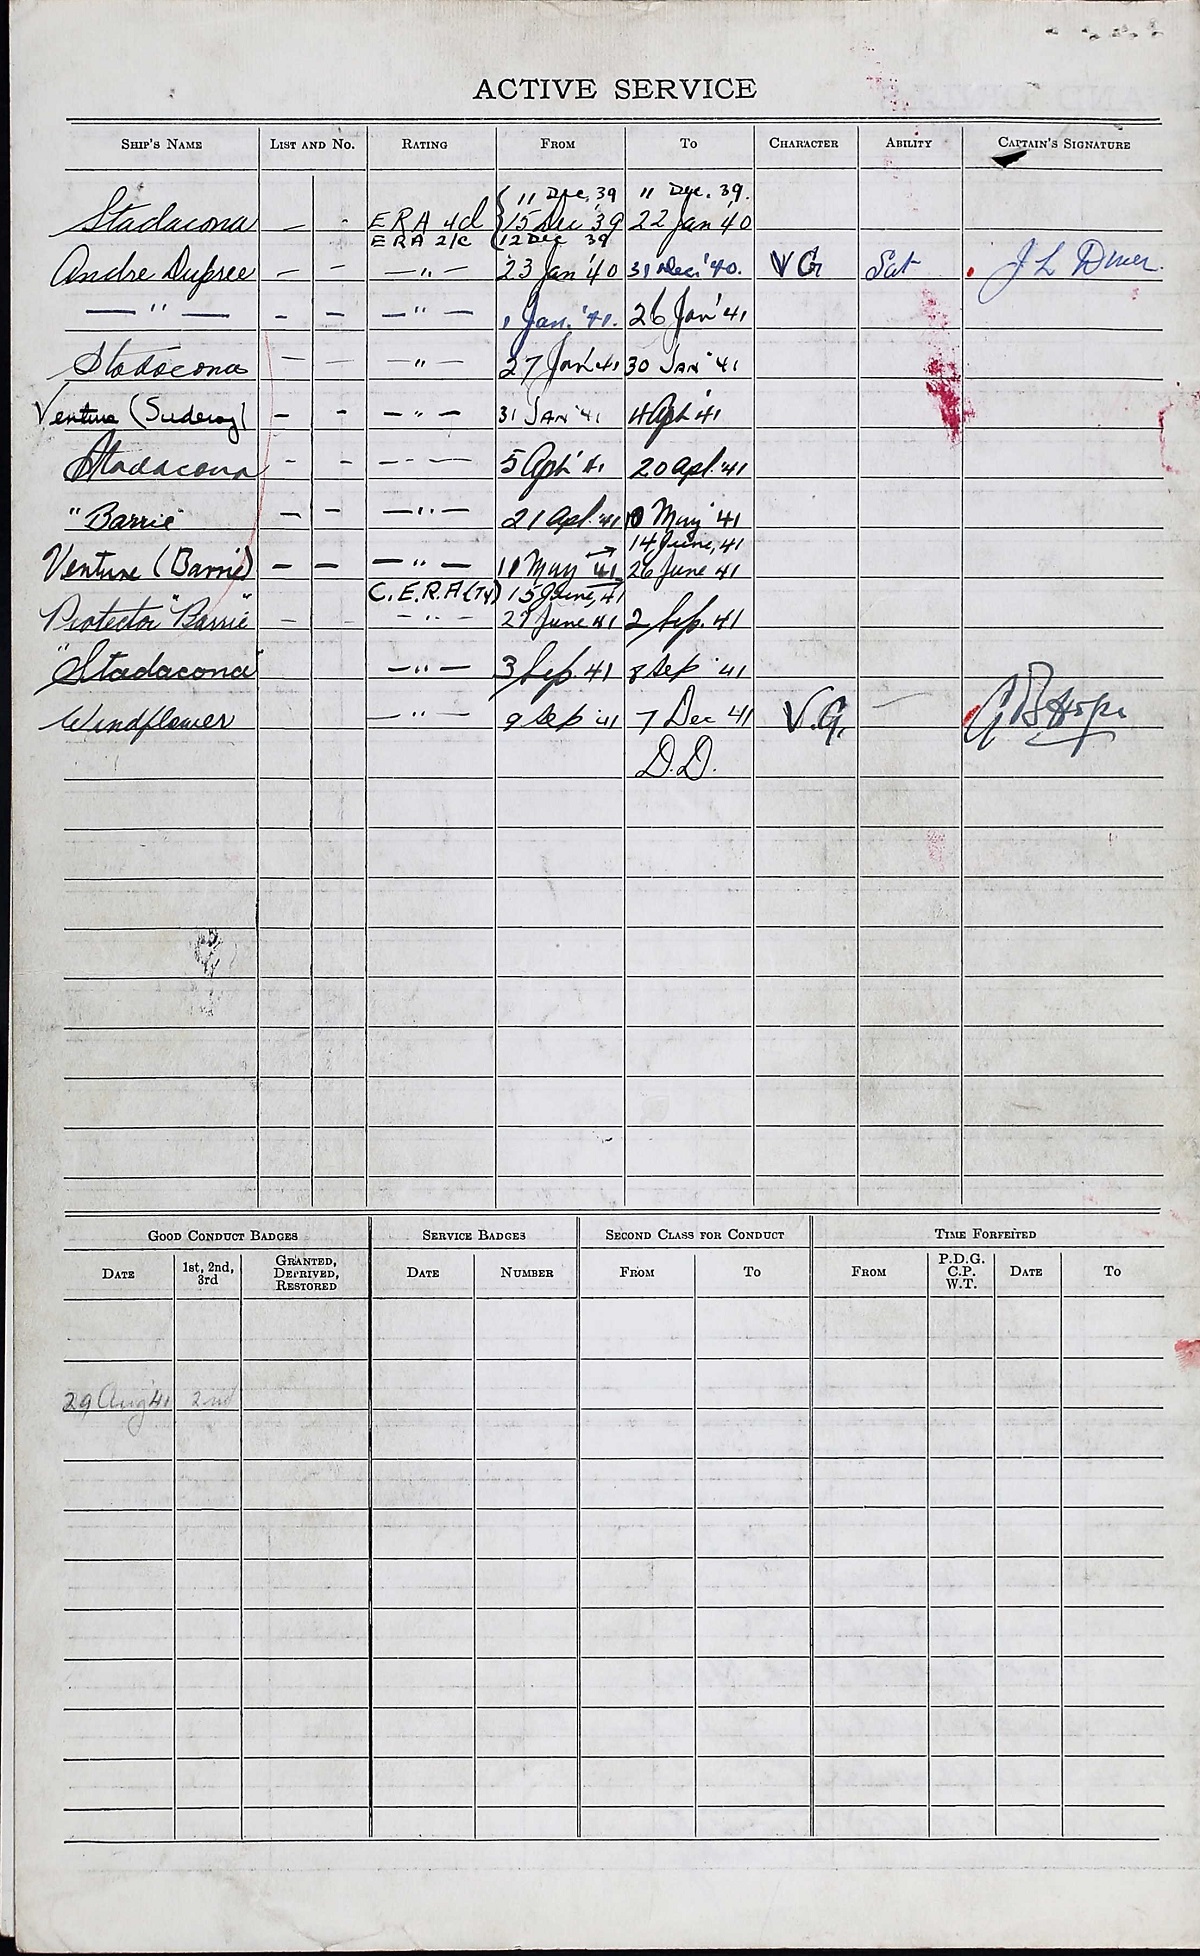 ACTIVE SERVICE
SHIP'S NAME LIST AND NO. RATING FROM TO CHARACTER ABILITY CAPTAIN'S SIGNATURE
11 Dec, 39 11 Dec. 39.
Stadacona — - ERA 4cl 15 Dec '39 22 Jan '40
ERA 2/c 12 Dec 39
Andre Dupree — — —〃— 23 Jan '40 31 Dec '40. VG Sat J L Diver.
— 〃 — - — —〃— 1 Jan. '41. 26 Jan '41
Stadacona — — —〃— 27 Jan '41 30 JAN '41
Venture (Suderoy) — - —〃— 31 JAN '41 4 Apl '41
Stadacona - - —〃— 5 Apl '41 20 Apl. '41
"Barrie" — — —〃— 21 Apl. '41 10 May '41
14, June, 41
Venture (Barrie) — — —〃— 11 May '41 26 June 41
C.E.R.A (Ty) 15 June, 41
Protector "Barrie" — - -〃- 27 June 41 2 Sep. 41
"Stadacona" —〃— 3 Sep. 41 8 Sep '41
Windflower —〃— 9 Sep '41 7 Dec 41 V.G. —
D.D.
GOOD CONDUCT BADGES SERVICE BADGES SECOND CLASS FOR CONDUCT TIME FORFEITED
DATE 1st, 2nd, 3rd GRANTED, DEPRIVED, RESTORED DATE NUMBER FROM TO FROM P.D.G. C.P. W.T. DATE TO
29 Aug '41 2nd